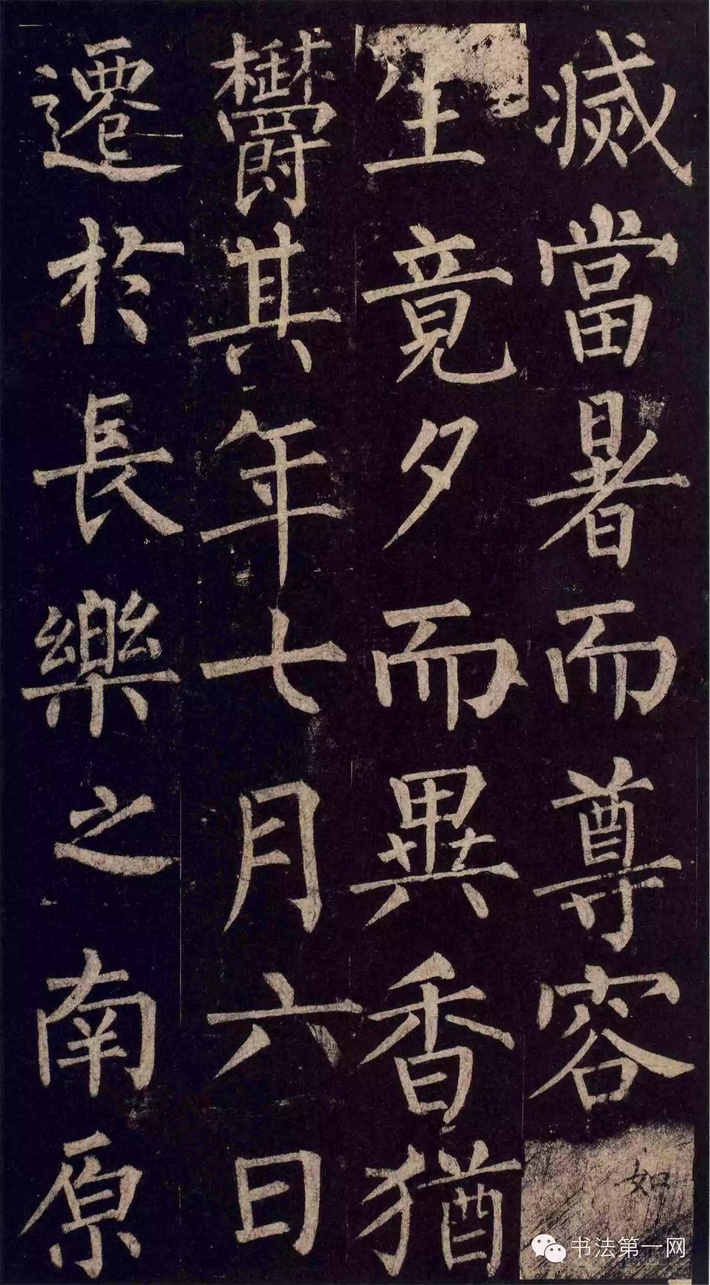 滅當暑而尊容如
生竟夕而異香猶
欝其年七月六日
遷於長樂之南原
书法第一网